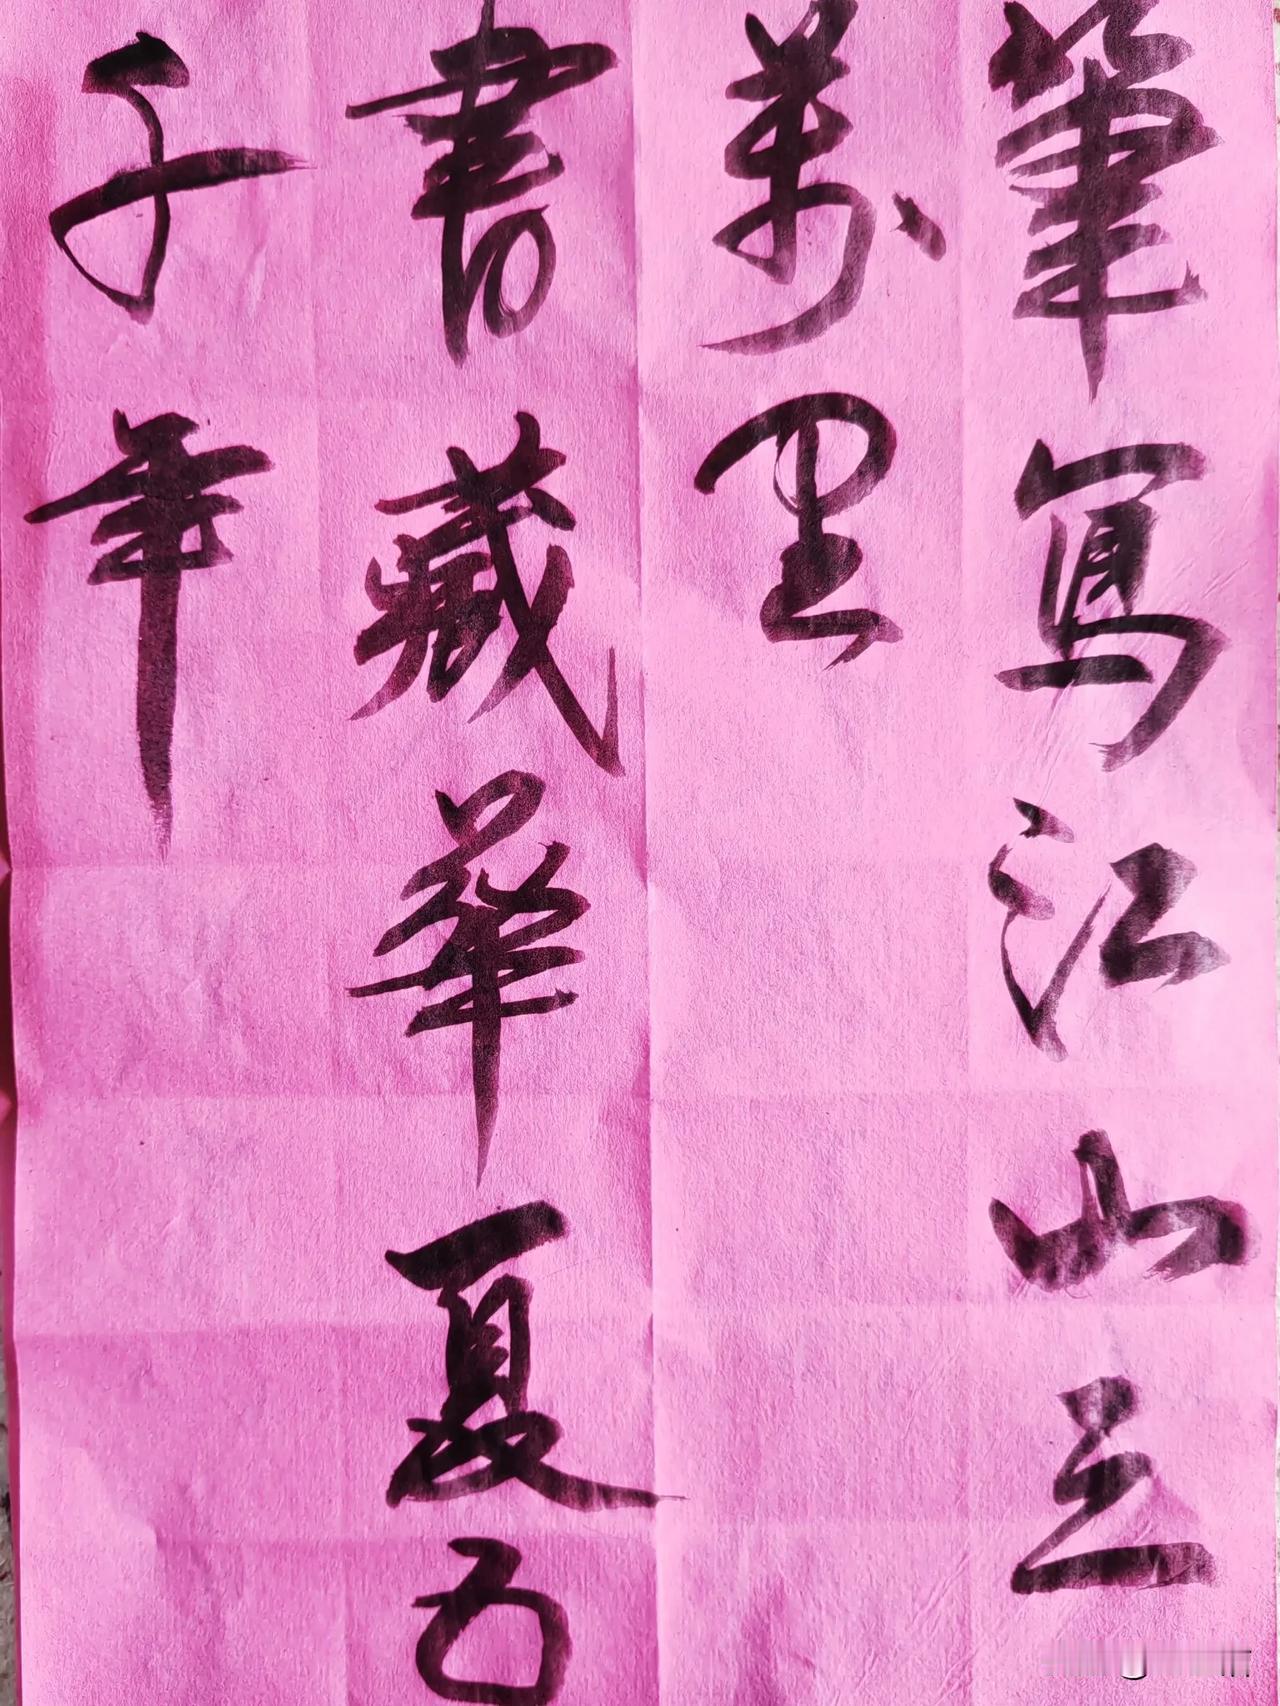 筆寫江山三
萬里
書藏華夏五
千年